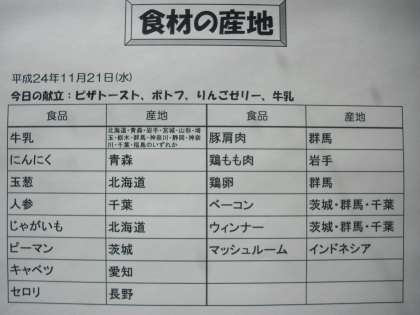 食材の産地
平成24年11月21日(水)
今日の献立：ピザトースト、ポトフ、りんごゼリー、牛乳
食品 産地 食品 産地
牛乳 北海道・青森・岩手・宮城・山形・埼玉・栃木・群馬・神奈川・静岡・神奈川・千葉・福島のいずれか 豚肩肉 群馬
にんにく 青森 鶏もも肉 岩手
玉葱 北海道 鶏卵 群馬
人参 千葉 ベーコン 茨城・群馬・千葉
じゃがいも 北海道 ウィンナー 茨城・群馬・千葉
ピーマン 茨城 マッシュルーム インドネシア
キャベツ 愛知
セロリ 長野